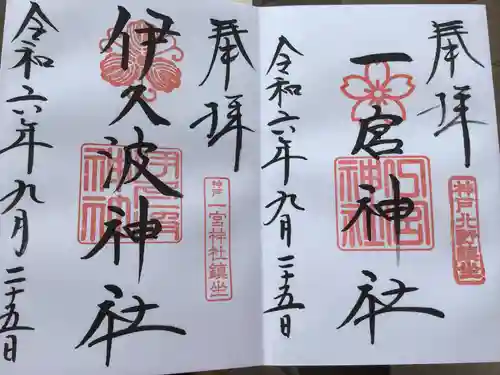 奉拝
一宮神社
令和六年九月二十五日
奉拝
神戸 一宮神社鎮坐
伊久波神社
令和六年九月二十五日